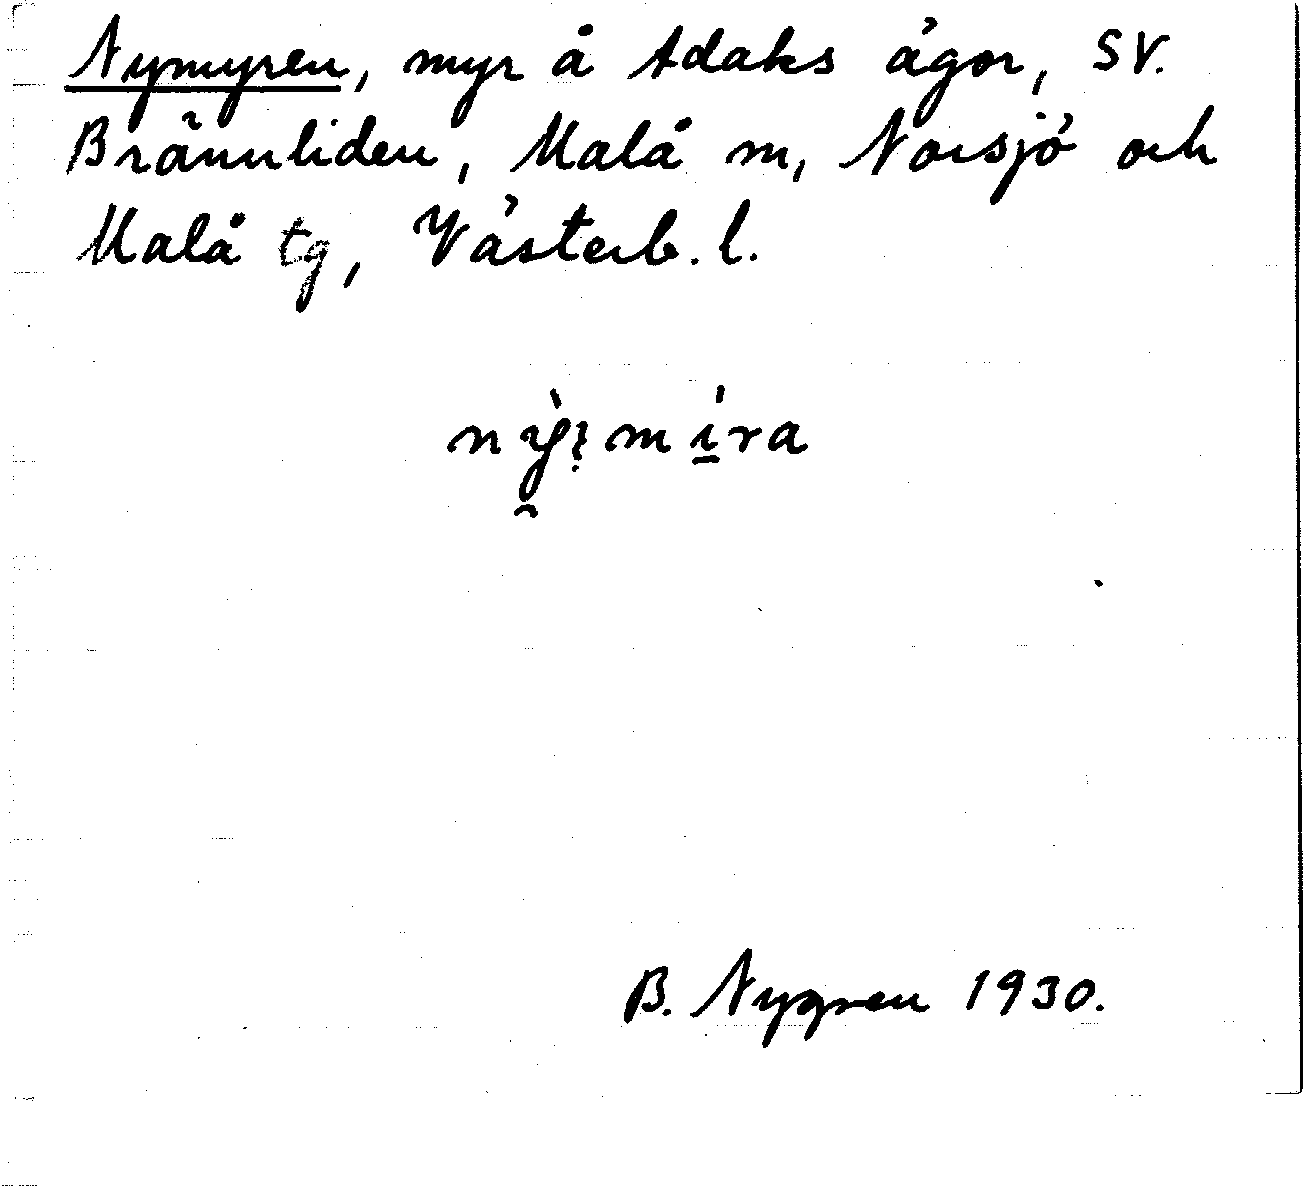 Nymyren, myr å Adaks ägor, SV.
Brännliden, Malå m, Norsjö och
Malå tg, Västerb. l.
nỳ̯ꝛmı̱́ra
B. Nygren 1930.